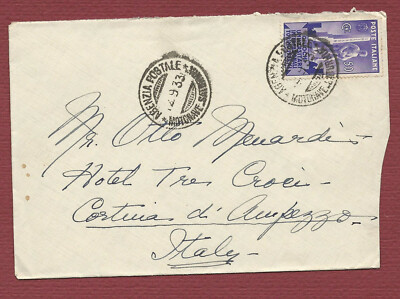 AGENZIA POSTALE
2.9.33
MOTONAVE SATURNIA
POSTE ITALIANE
50
Mr. Otto Menardi
Hotel Tre Croci
Cortina d'Ampezzo
Italy